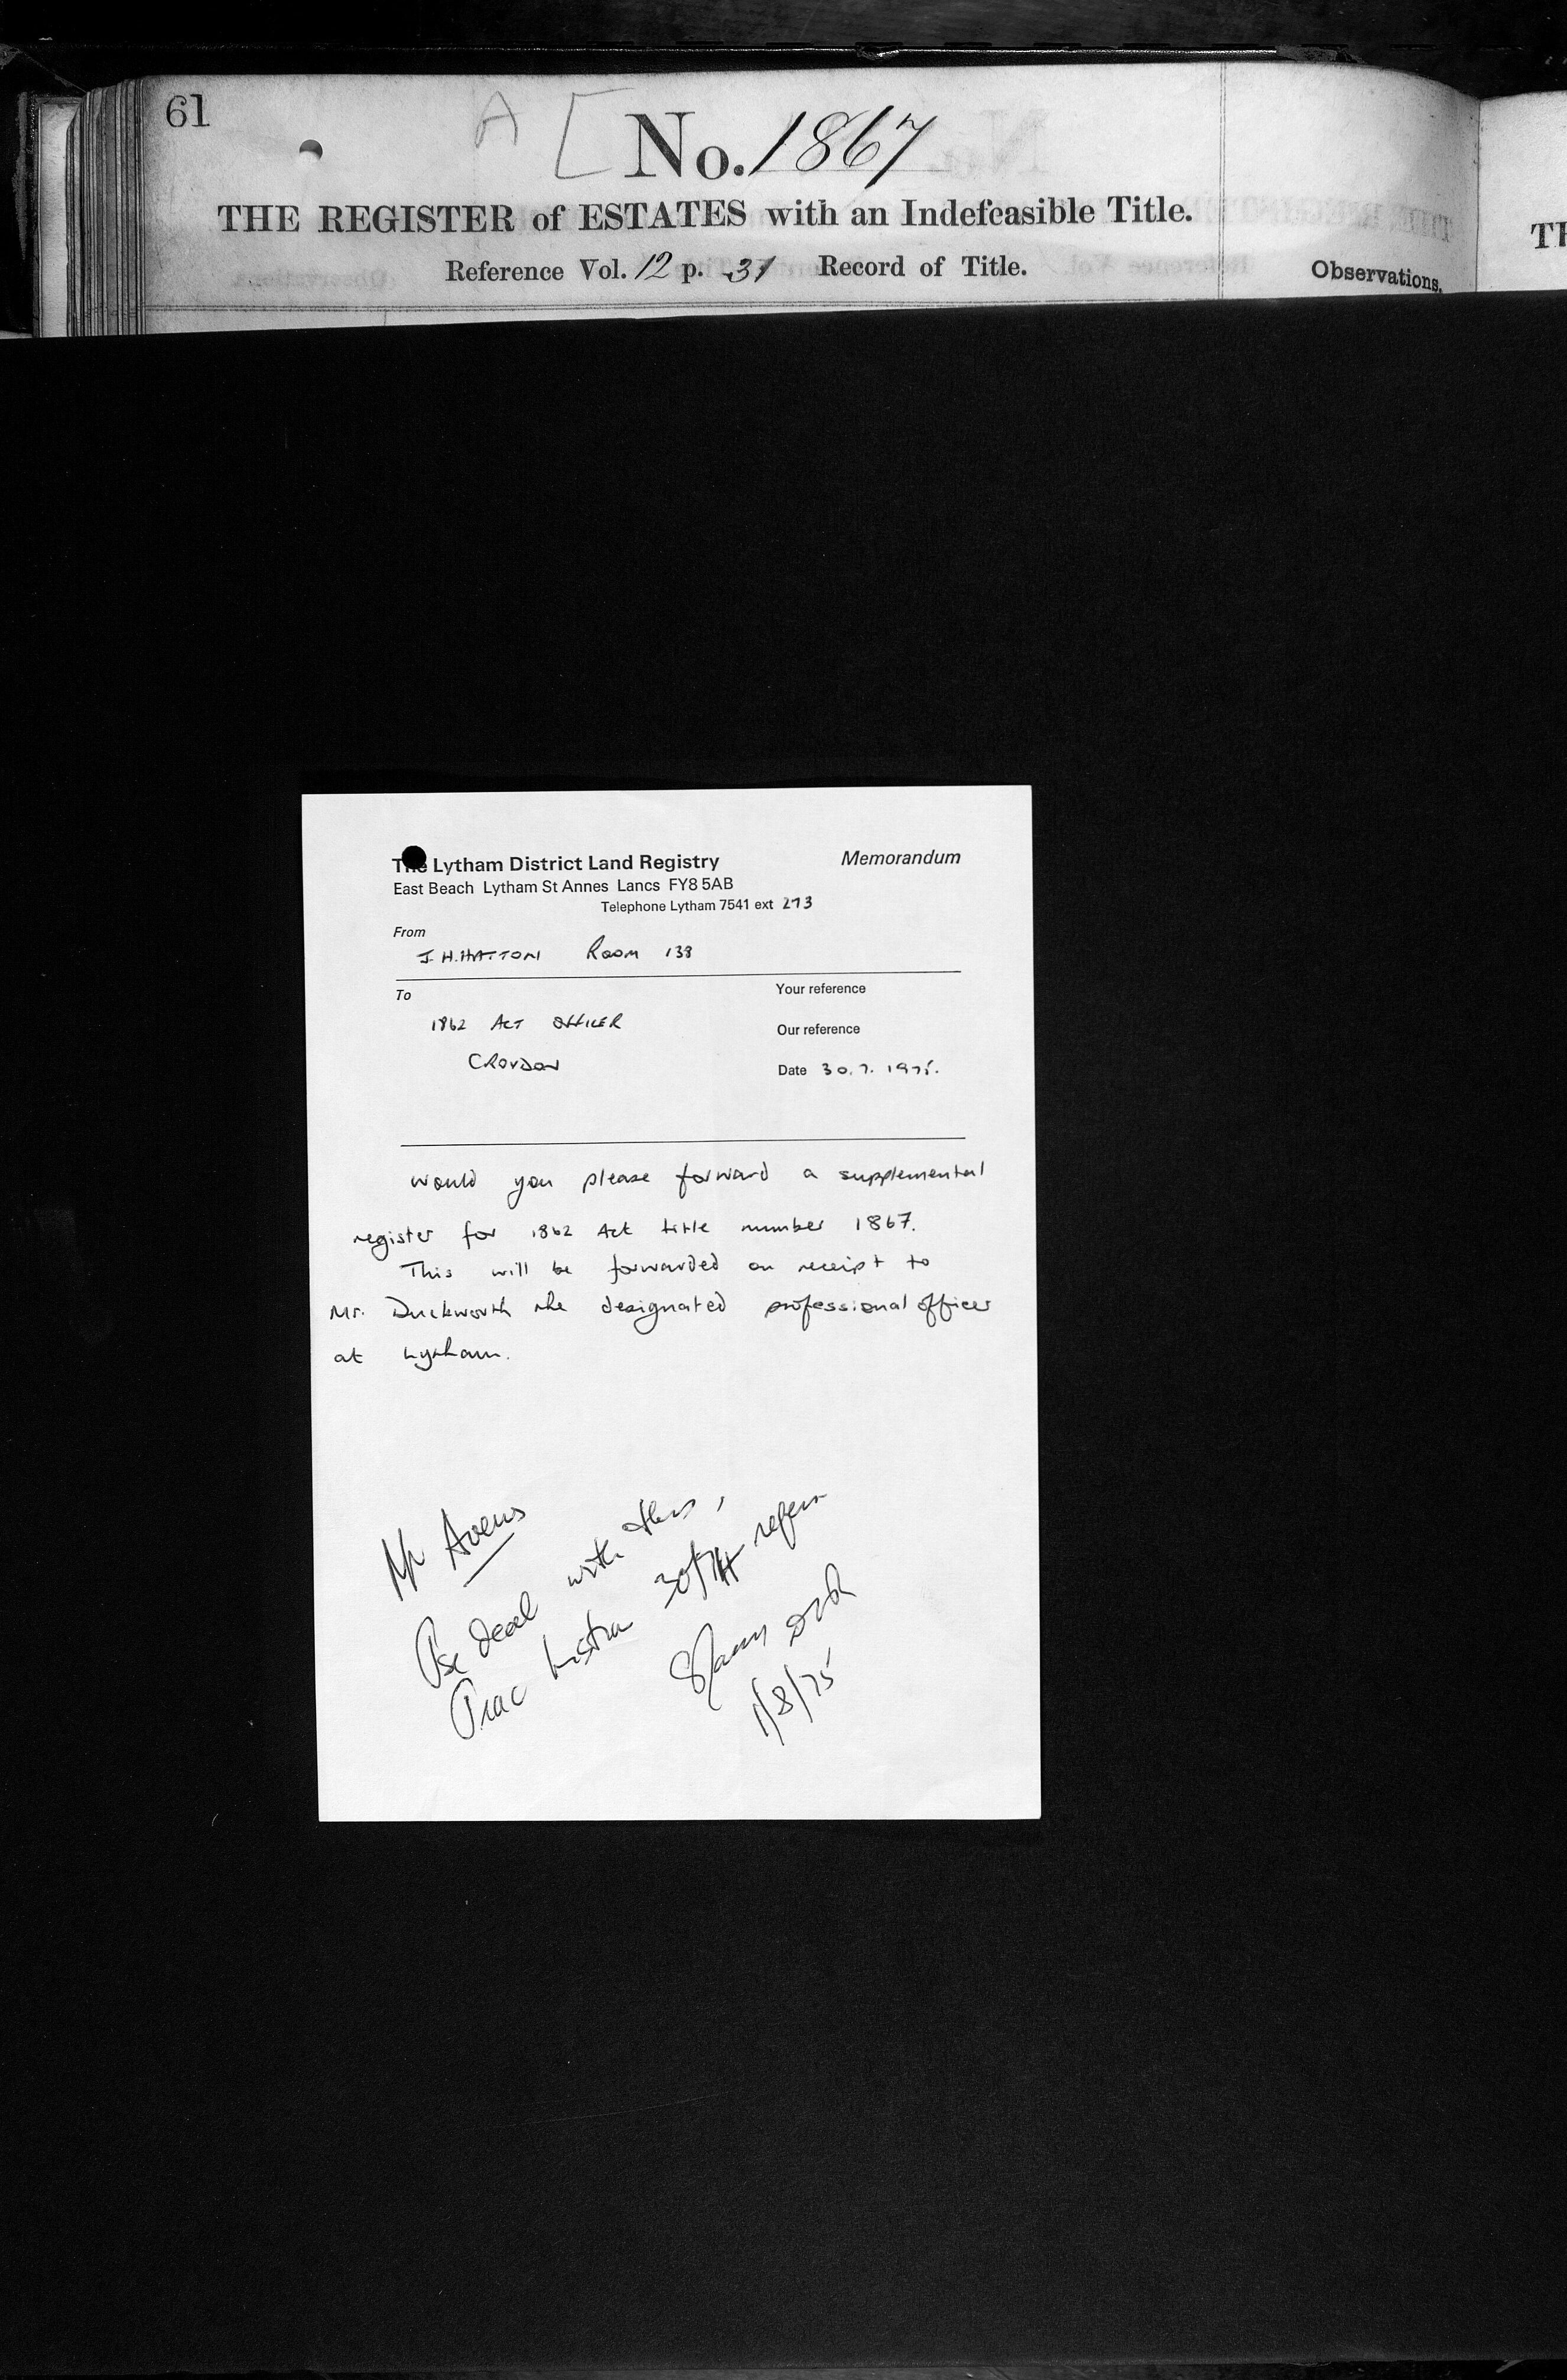 61
A [ No. 1867
THE REGISTER of ESTATES with an Indefeasible Title.
Reference Vol. 12 p. 31 Record of Title.
Observations.
The Lytham District Land Registry
Memorandum
East Beach Lytham St Annes Lancs FY8 5AB
Telephone Lytham 7541 ext 273
From
J. H. HATTON Room 138
To
1862 ACT OFFICER
CROYDON
Your reference
Our reference
Date 30.7.1975.
would you please forward a supplemental
register for 1862 Act title number 1867.
This will be forwarded on receipt to
Mr. Duckworth the designated professional officer
at Lytham.
Mr Avens
Pse deal with this,
Prac Instn 30/74 refers
1/8/75